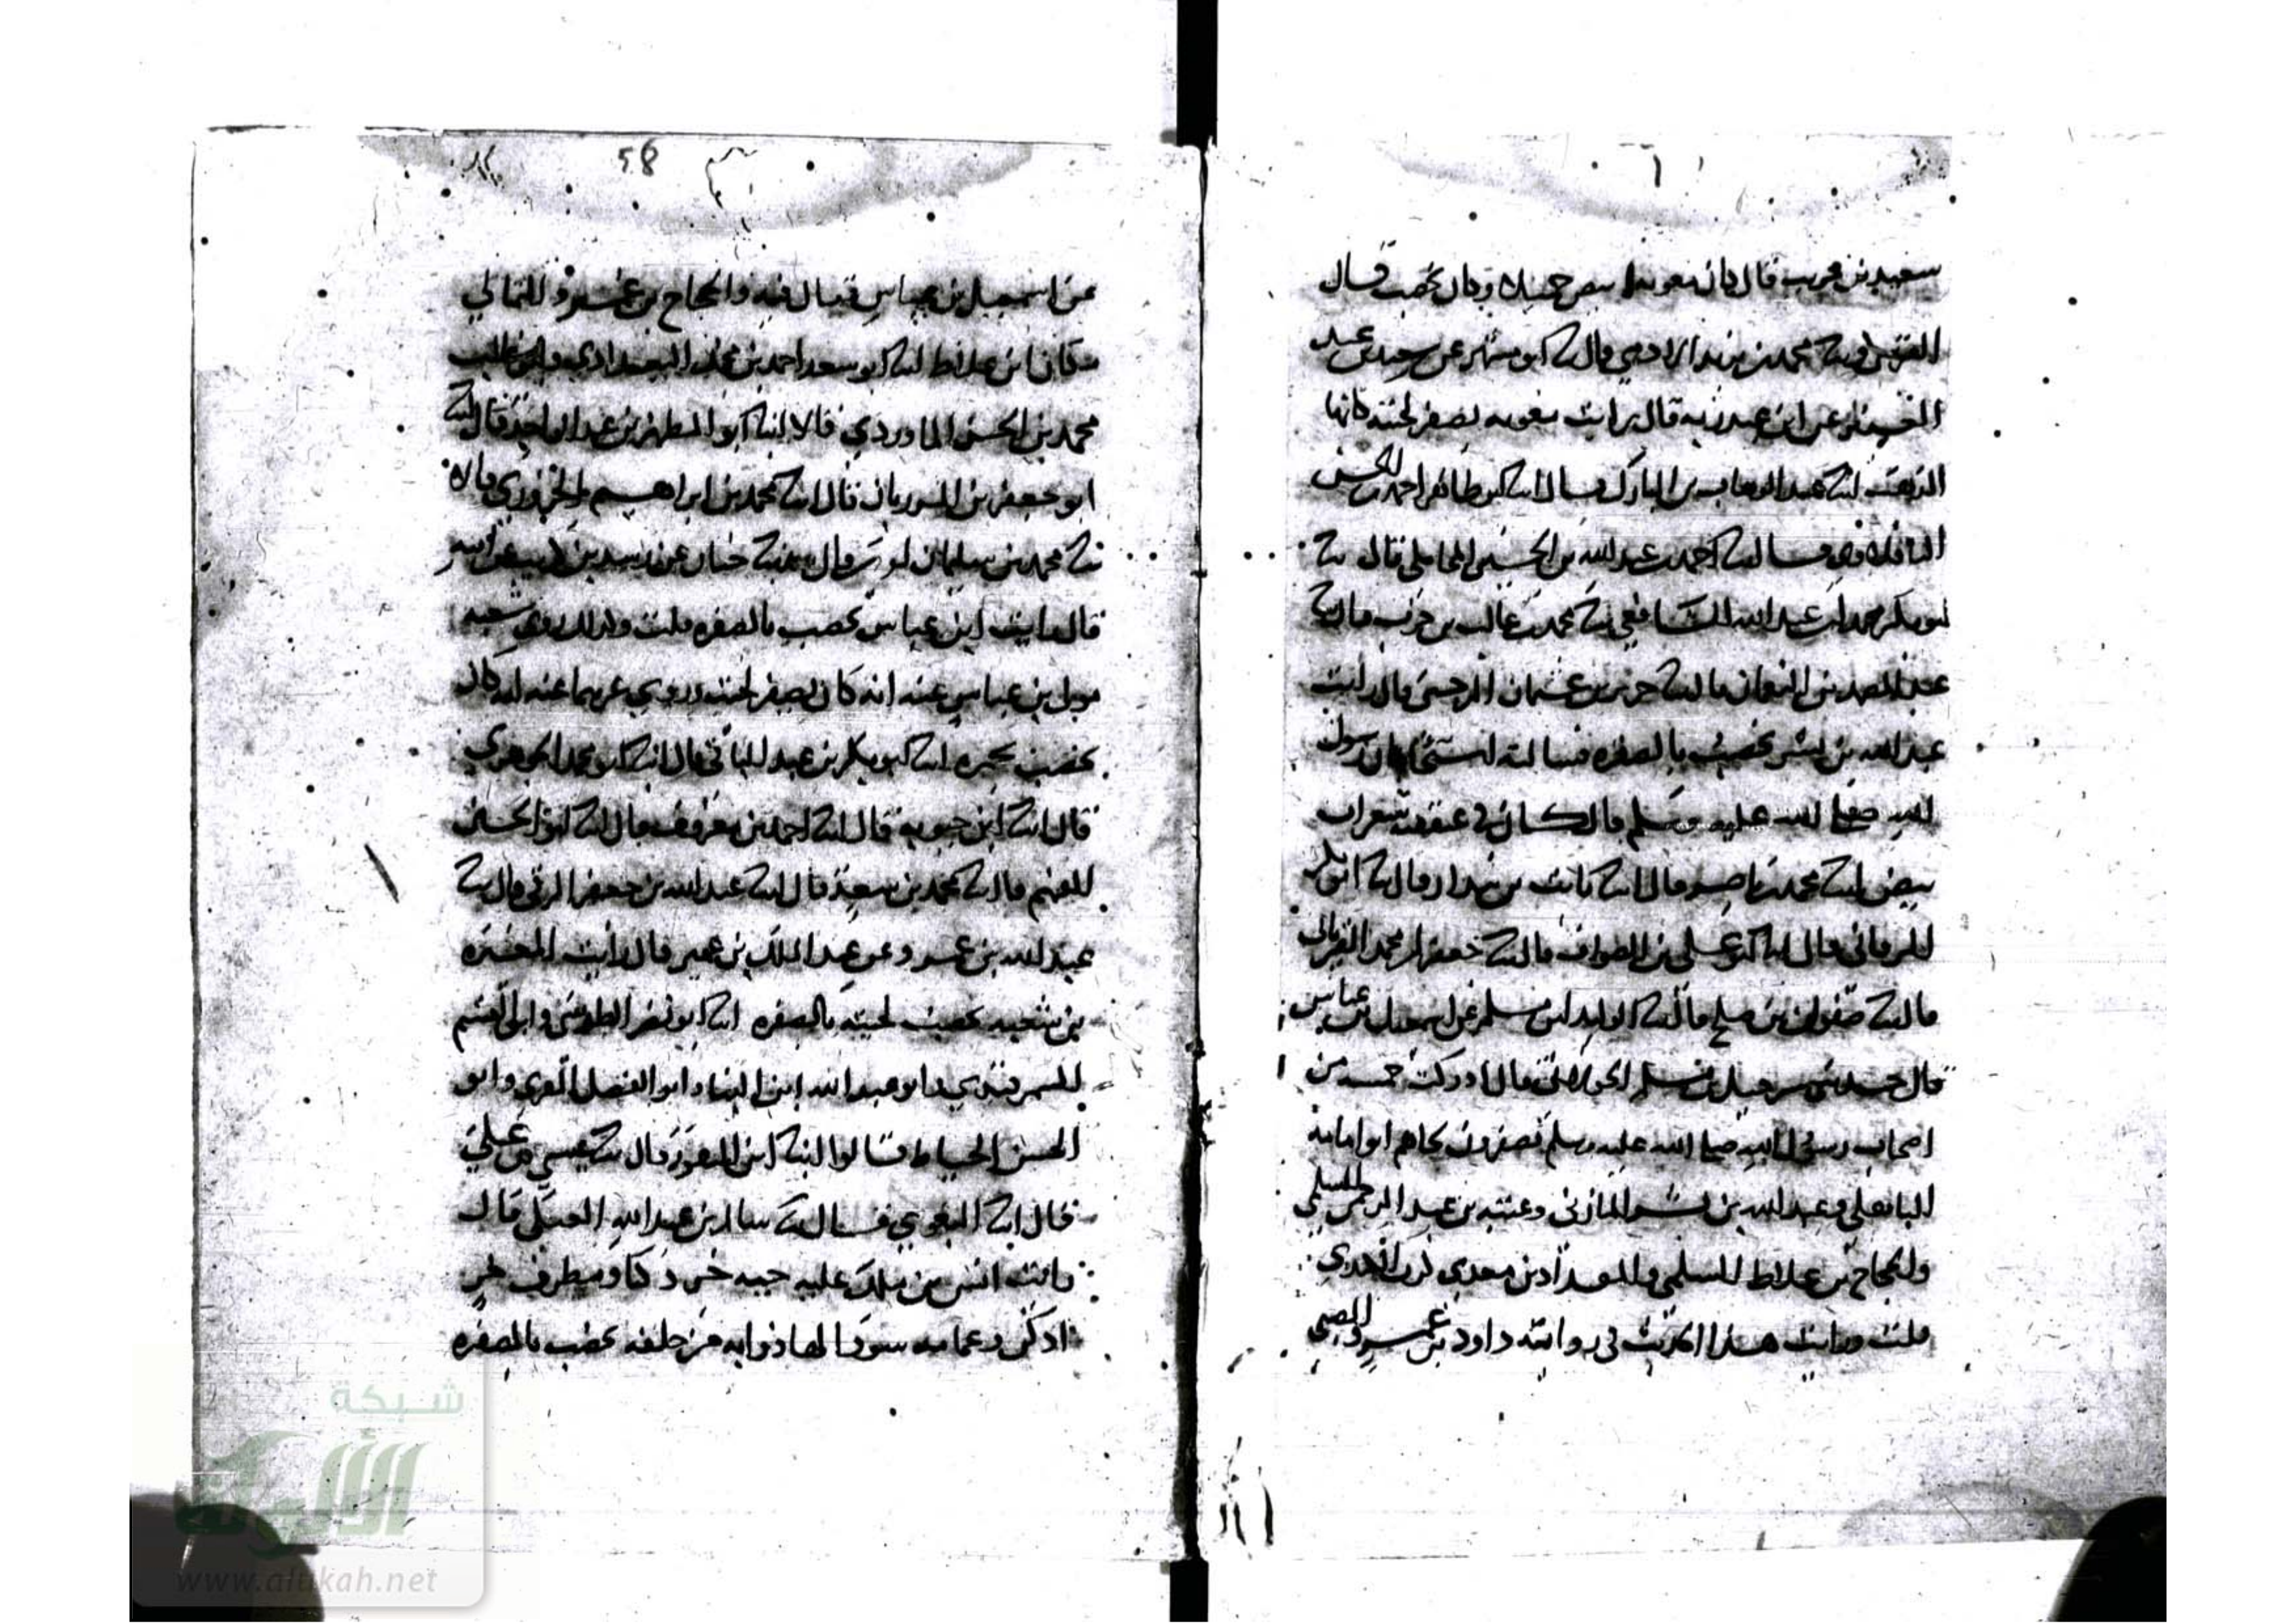 قال كان معويه ابيض جميلا وكان يخضب قال
محمد بن قال ابو مسهر عن سعيد بن عبد
العزيز عن ابن عبد ربه قال رايت معويه يصفر لحيته كانها
الذهب عبد الوهاب بن المبارك قال ابو طاهر احمد بن الحسن
الباقلاوي قال احمد بن عبد الله بن الحسين المحاملي قال
ابو بكر محمد بن عبد الله الشافعي محمد بن غالب بن حرب قال
عبد الصمد بن النعمان قال حريز بن عثمان الرحبي قال رايت
عبد الله بن بسر يخضب بالصفره فسالته اكان رسول
الله صلى الله عليه وسلم قال كان في عنفقته شعرات
بيض محمد بن ناصر قال ثابت بن بندار قال ابو بكر
البرقاني قال ابو علي بن الصواف قال جعفر بن محمد الفريابي
قال صفوان بن صلح قال الوليد بن مسلم عن اسمعيل بن عياش
قال حدثني شرحبيل بن مسلم الخولاني قال ادركت خمسه من
اصحاب رسول الله صلى الله عليه وسلم يصفرون لحاهم ابو امامه
الباهلي وعبد الله بن بسر المازني وعتبه بن عبد السلمي
والحجاج بن علاط السلمي والمقدام بن معدي كرب الكندي
قلت ورايت هذا الحديث في روايه داود بن عمرو الضبي
58
عن اسمعيل بن عياش فقال فيه والحجاج بن الثمالي
مكان ابن علاط ابو سعد احمد بن محمد البغدادي وابو غالب
محمد بن الحسن الماوردي قالا ابو المطهر بن عبد الواحد قال
ابو جعفر بن المرزبان قال محمد بن ابراهيم الحزوري قال
محمد بن سليمان لوين قال حبان عن رشدين بن كريب عن ابيه
قال رايت ابن عباس يخضب بالصفره قلت وكذلك روى شعبه
مولى بن عباس عنه انه كان يصفر لحيته وروي غيرهما عنه انه كان
يخضب ابو بكر بن عبد الباقي قال ابو محمد الجوهري
قال ابن حيويه قال احمد بن معروف قال ابو الحسين
الفهم قال محمد بن سعد قال عبد الله بن جعفر الرقي قال
عبيد الله بن عمرو عن عبد الملك بن عمير قال رايت المغيره
بن شعبه يخضب لحيته بالصفره ابو نصر الطوسي وابو القسم
السمرقندي وابو عبد الله ابن البناء وابو الفضل المقري وابو
الحسن الخياط قالوا ابن النقور قال عيسى بن علي
قال البغوي قال سالم بن عبد الله العتكي قال
رايت انس بن ملك عليه جبه خز دكنا ومطرف خز
ادكن وعمامه سودا لها ذوابه من خلفه يخضب بالصفره
شبكة
الألوكة
www.alukah.net